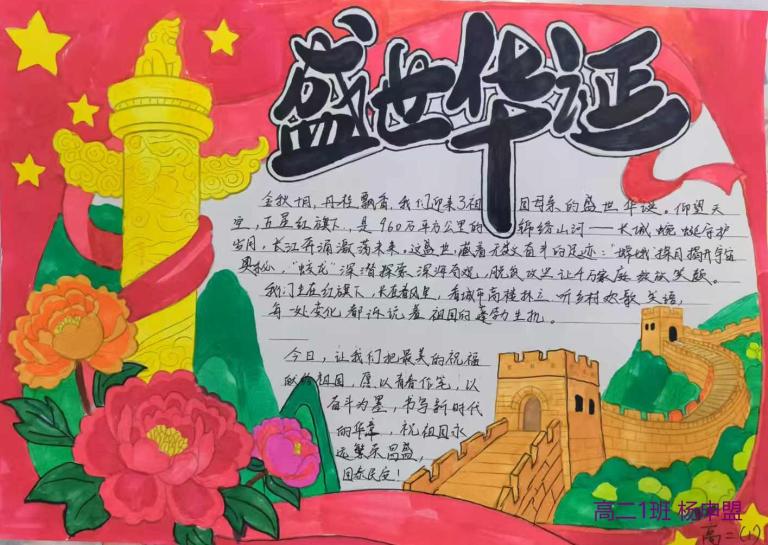 盛世华诞
金秋十月，丹桂飘香，我们迎来了祖国母亲的盛世华诞。仰望天
空，五星红旗下，是960万平方公里的锦绣山河——长城蜿蜒守护
岁月，长江奔涌激荡未来。这盛世，藏着无数奋斗的足迹："嫦娥"探月揭开宇宙
奥秘，"蛟龙"深潜探索深海奇观，脱贫攻坚让千万家庭绽放笑颜。
我们生在红旗下，长在春风里，看城市高楼林立，听乡村欢歌笑语，
每一处变化都诉说着祖国的蓬勃生机。
今日，让我们把最美的祝福
献给祖国，愿以青春作笔，以
奋斗为墨，书写新时代
的华章，祝祖国永
远繁荣昌盛，
国泰民安！
高二1班 杨申盟
高二(1)